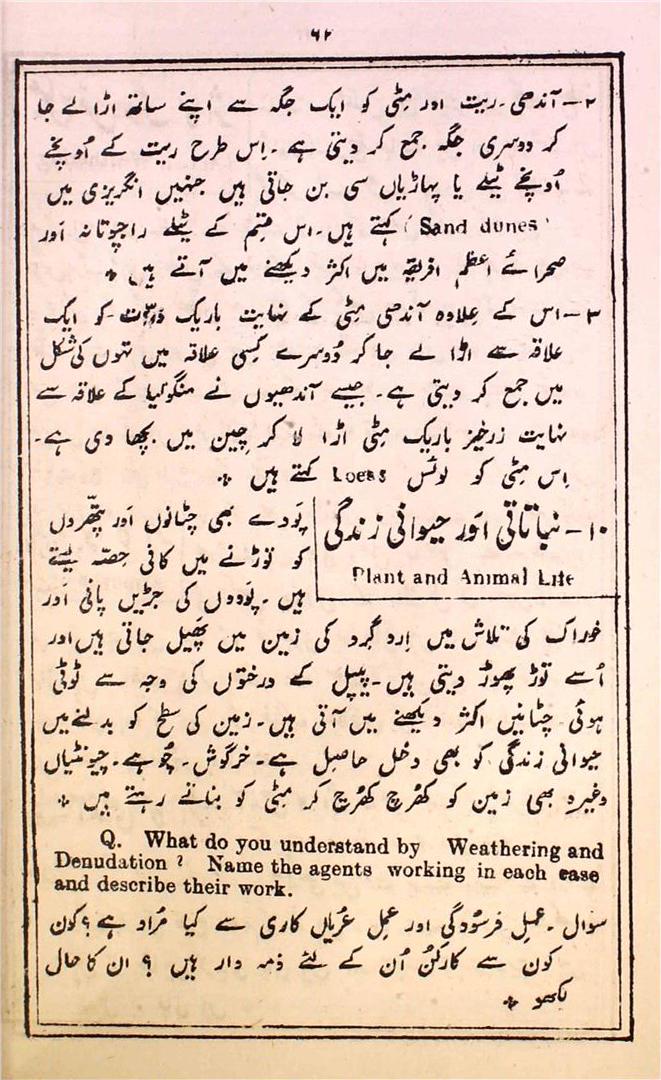 ۶۲
۲۔ آندھی۔ ریت اور مٹی کو ایک جگہ سے اپنے ساتھ اڑا لے جا
کر دوسری جگہ جمع کر دیتی ہے۔ اِس طرح ریت کے اُونچے
اُونچے ٹیلے یا پہاڑیاں سی بن جاتی ہیں جنہیں انگریزی میں
(Sand dunes) کہتے ہیں۔ اس قِسم کے ٹیلے راجپوتانہ اَور
صحرائے اعظم افریقہ میں اکثر دیکھنے میں آتے ہیں *
۳۔ اس کے عِلاوہ آندھی مٹی کے نہایت باریک ذرّات کو ایک
علاقہ سے اڑا لے جا کر دُوسرے کِسی علاقہ میں تہوں کی شکل
میں جمع کر دیتی ہے۔ جیسے آندھیوں نے منگولیا کے علاقہ سے
نہایت زرخیز باریک مٹی اڑا لا کر چین میں بچھا دی ہے۔
اِس مٹی کو لوئس Loess کہتے ہیں *
۱۰۔ نباتاتی اَور حیوانی زندگی
Plant and Animal Life
پَودے بھی چٹانوں اَور پتھّروں
کو توڑنے میں کافی حِصّہ لیتے
ہیں۔ پَودوں کی جڑیں پانی اَور
خوراک کی تلاش میں اِرد گِرد کی زمین میں پھَیل جاتی ہیں اور
اُسے توڑ پھوڑ دیتی ہیں۔ پیپل کے درختوں کی وجہ سے ٹوٹی
ہوئی چٹانیں اکثر دیکھنے میں آتی ہیں۔ زمین کی سطح کو بدلنے میں
حیوانی زندگی کو بھی دخل حاصِل ہے۔ خرگوش۔ چُوہے۔ چیونٹیاں
وغیرہ بھی زمین کو کھُرچ کھُرچ کر مٹی کو بناتے رہتے ہیں *
Q. What do you understand by Weathering and
Denudation? Name the agents working in each case
and describe their work.
سوال۔ عملِ فرسُودگی اور عملِ عُریاں کاری سے کیا مُراد ہے؟ کون
کون سے کارکُن اُن کے لئے ذمہ دار ہیں؟ ان کا حال
لکھو *